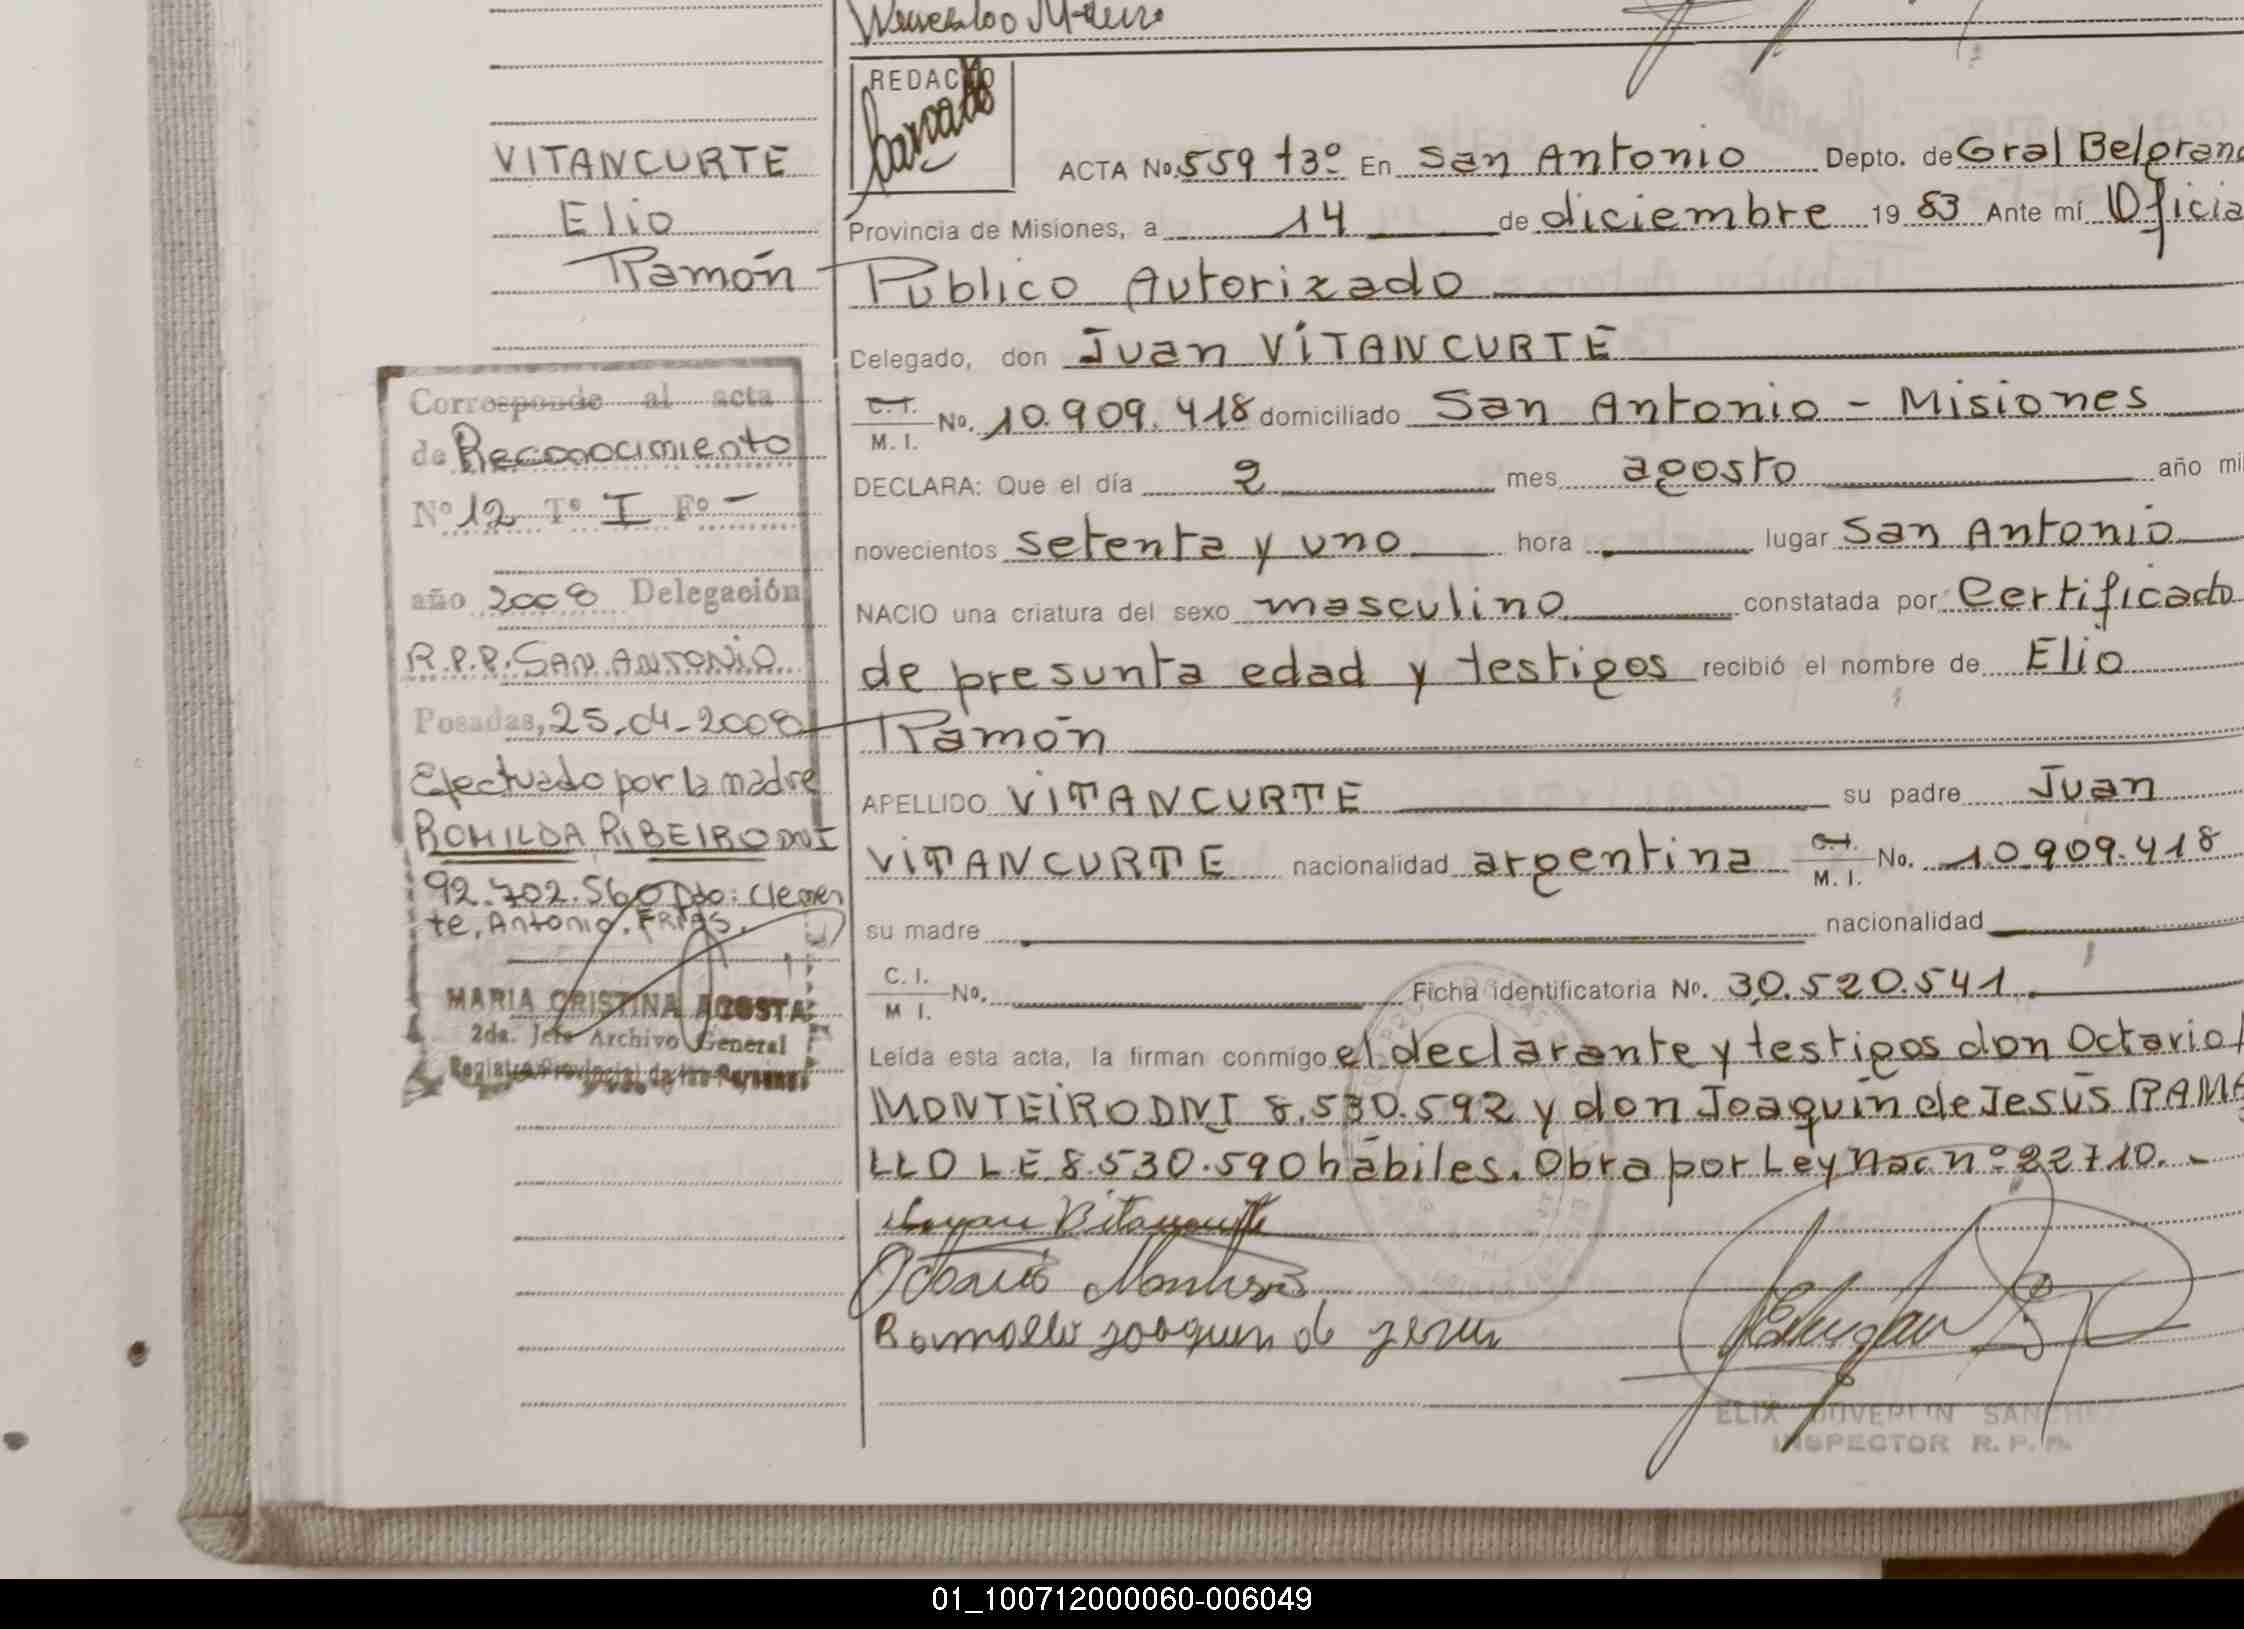 REDAC
VITANCURTE
Elio
Ramón
ACTA No. 559 t3º En San Antonio Depto. de Gral Belgrano
Provincia de Misiones, a 14 de diciembre 19 83 Ante mí Oficia
Público Autorizado
Celegado, don Juan VITANCURTE
C.I. M.I. No. 10.909.418 domiciliado San Antonio - Misiones
DECLARA: Que el día 2 mes agosto año mi
novecientos setenta y uno hora lugar San Antonio
NACIO una criatura del sexo masculino constatada por Certificado
de presunta edad y testigos recibió el nombre de Elio
Ramón
APELLIDO VITANCURTE su padre Juan
VITANCURTE nacionalidad argentina C.I. M.I. No. 10.909.418
su madre nacionalidad
C.I. M I. No. Ficha identificatoria No. 30.520.541.
Leída esta acta, la firman conmigo el declarante y testigos don Octavio
MONTEIRO DNI 8.530.592 y don Joaquín de Jesús RAMA
LLO L.E. 8.530.590 hábiles. Obra por Ley Nac. nº 22710. -
Octavio Monteiro
Ramallo Joaquin de Jesus
INSPECTOR R. P. P.
Corresponde al acta
de Reconocimiento
Nº 12 Tº I Fº -
año 2008 Delegación
R.P.P. SAN ANTONIO
Posadas, 25-04-2008
Efectuado por la madre
ROMILDA RIBEIRO DNI
92.702.560 Dto: Clemen
te, Antonio. FRIAS.
MARIA CRISTINA ACOSTA
2da. Jefe Archivo General
Registro Provincial de las Personas
01_100712000060-006049